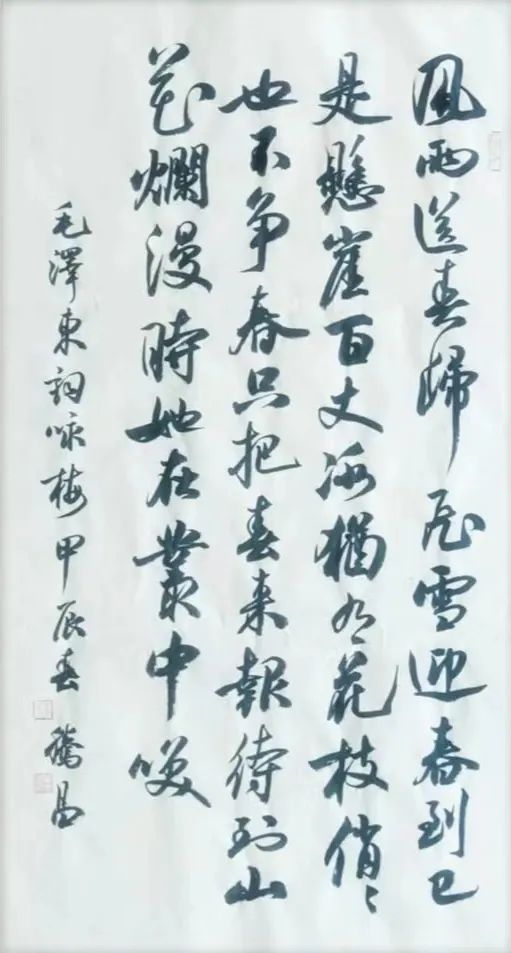 風雨送春歸飛雪迎春到已
是懸崖百丈冰猶有花枝俏〻
也不争春只把春来報待到山
花爛漫時她在叢中咲
毛澤東詞咏梅甲辰春 騰昌